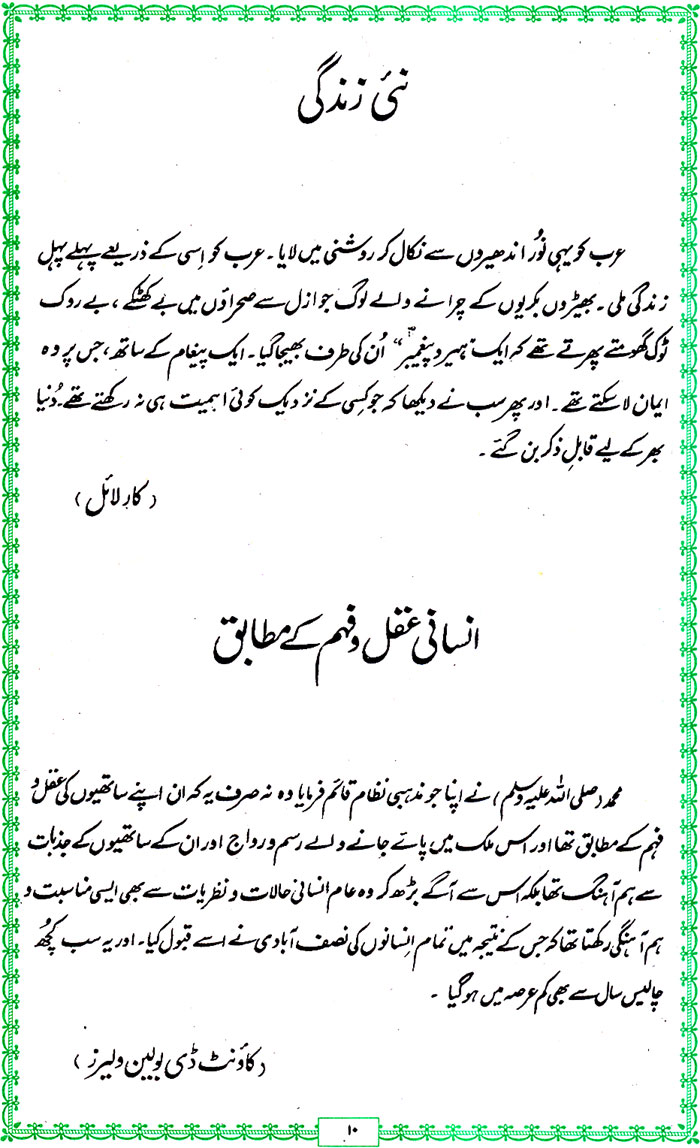 نئی زندگی
عرب کو یہی نُور اندھیروں سے نکال کر روشنی میں لایا۔ عرب کو اِسی کے ذریعے پہلے پہل
زندگی ملی۔ بھیڑوں بکریوں کے چرانے والے لوگ جو ازل سے صحراؤں میں بے کھٹکے، بے روک
ٹوک گھومتے پھرتے تھے کہ ایک "ہیرو پیغمبرؐ" اُن کی طرف بھیجا گیا۔ ایک پیغام کے ساتھ، جس پر وہ
ایمان لا سکتے تھے۔ اور پھر سب نے دیکھا کہ جو کسی کے نزدیک کوئی اہمیت ہی نہ رکھتے تھے۔ دُنیا
بھر کے لیے قابلِ ذکر بن گئے۔
(کارلائل)
انسانی عقل و فہم کے مطابق
محمد (صلی اللہ علیہ وسلم) نے اپنا جو مذہبی نظام قائم فرمایا وہ نہ صرف یہ کہ ان اپنے ساتھیوں کی عقل و
فہم کے مطابق تھا اور اس ملک میں پائے جانے والے رسم و رواج اور ان کے ساتھیوں کے جذبات
سے ہم آہنگ تھا بلکہ اس سے آگے بڑھ کر وہ عام انسانی حالات و نظریات سے بھی ایسی مناسبت و
ہم آہنگی رکھتا تھا کہ جس کے نتیجہ میں تمام اِنسانوں کی نصف آبادی نے اسے قبول کیا۔ اور یہ سب کچُھ
چالیس سال سے بھی کم عرصہ میں ہو گیا۔
(کاؤنٹ ڈی بولین ولیرز)
۱۰